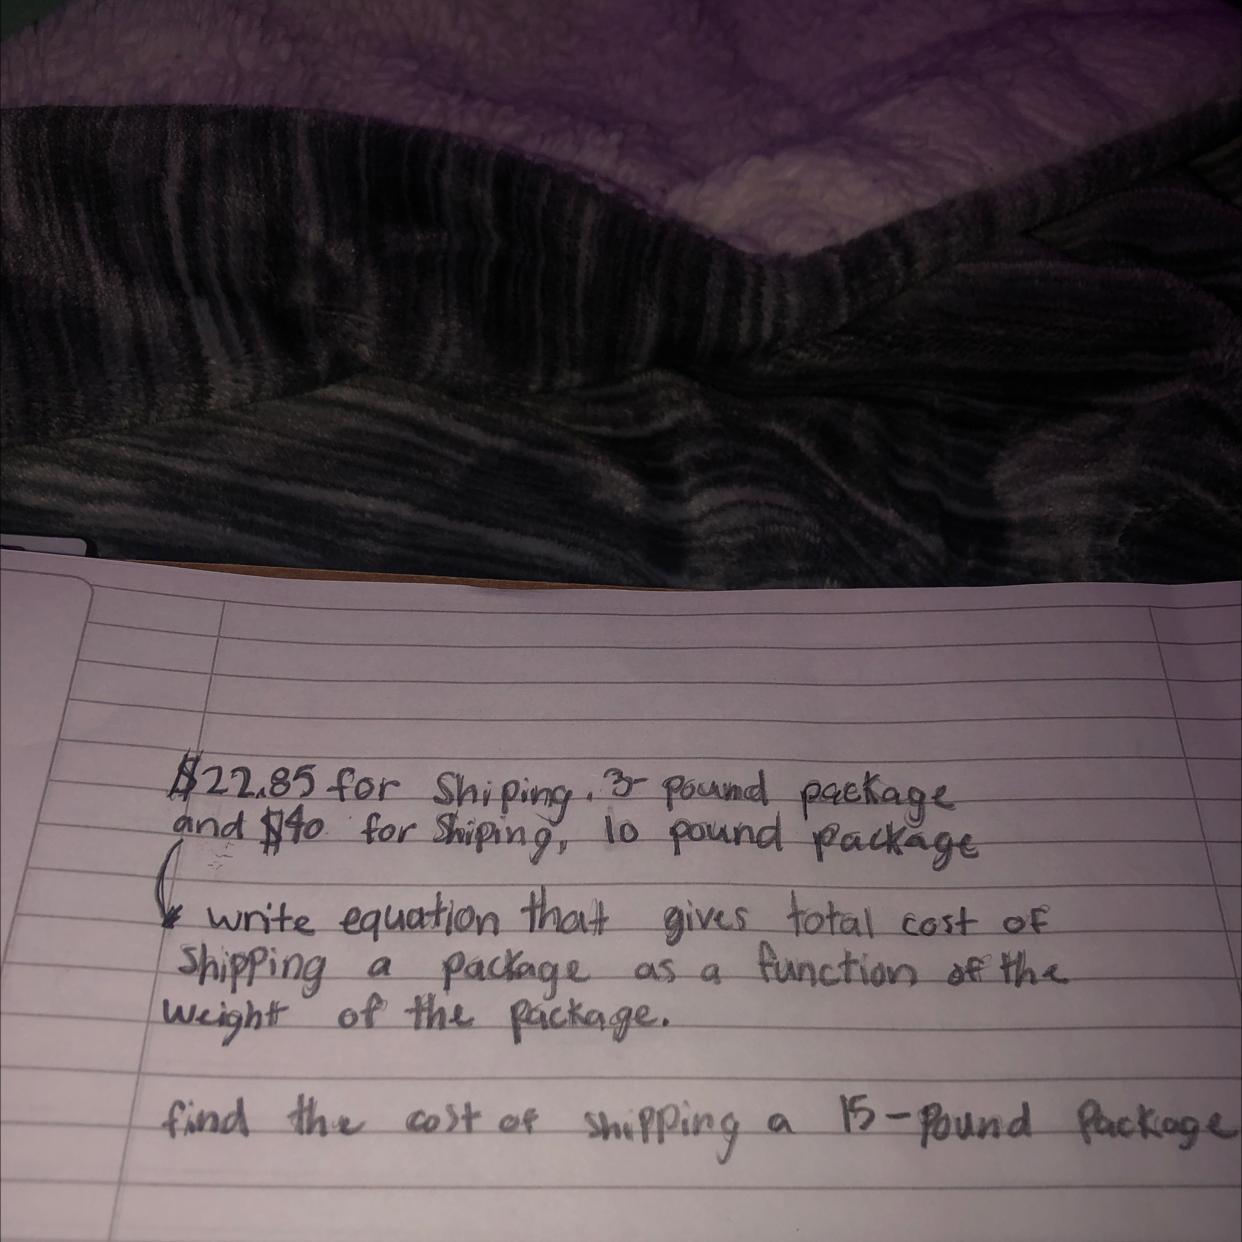 $22.85 for Shiping. 3- pound package
and $40 for Shiping, 10 pound package
write equation that gives total cost of
Shipping a package as a function of the
weight of the package.
find the cost of shipping a 15-pound Package